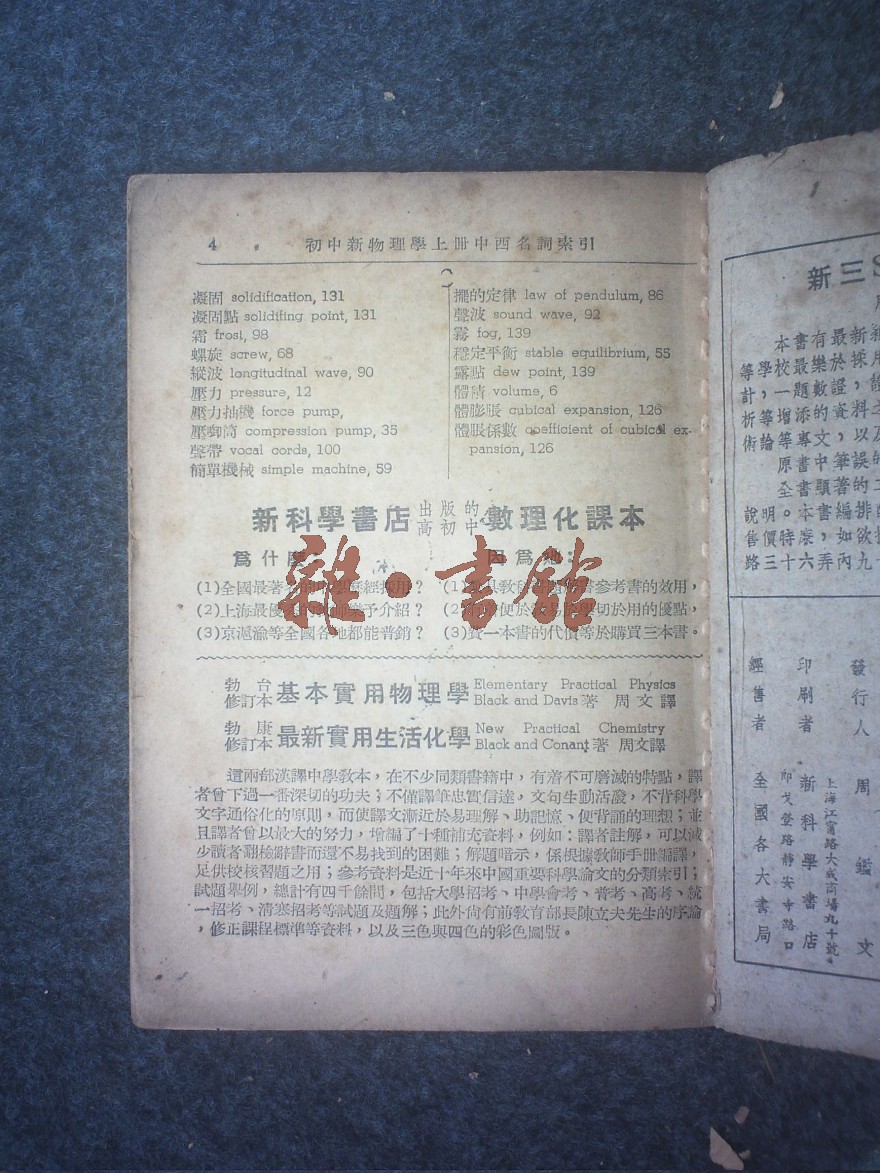 4
初中新物理學上册中西名詞索引
凝固 solidification, 131
凝固點 solidifing point, 131
霜 frosi, 98
螺旋 screw, 68
縱波 longitudinal wave, 90
壓力 pressure, 12
壓力抽機 force pump,
壓縮筒 compression pump, 35
聲帶 vocal cords, 100
簡單機械 simple machine, 59
擺的定律 law of pendulum, 86
聲波 sound wave, 92
霧 fog, 139
穩定平衡 stable equilibrium, 55
露點 dew point, 139
體積 volume, 6
體膨脹 cubical expansion, 126
體脹係數 coefficient of cubical ex-
pansion, 126
新科學書店出版的高初中數理化課本
爲什麽
(1)全國最著
(2)上海最優 予介紹？
(3)京滬渝等全國各地都能普銷？
因爲牠：
書參考書的效用，
切於用的優點，
(3)買一本書的代價等於購買三本書。
雜·書館
勃台修訂本 基本實用物理學 Elementary Practical Physics Black and Davis著 周文譯
勃康修訂本 最新實用生活化學 New Practical Chemistry Black and Conant著 周文譯
這兩部漢譯中學敎本，在不少同類書籍中，有着不可磨滅的特點，譯
者曾下過一番深切的功夫；不僅譯筆忠實信達，文句生動活潑，不背科學
文字通俗化的原則，而使譯文漸近於易理解、助記憶、便背誦的理想；並
且譯者曾以最大的努力，增編了十種補充資料，例如：譯者註解，可以減
少讀者翻檢辭書而還不易找到的困難；解題暗示，係根據敎師手册編譯，
足供校核習題之用；參考資料是近十年來中國重要科學論文的分類索引；
試題舉例，總計有四千餘問，包括大學招考、中學會考、普考、高考、統
一招考、清寒招考等試題及題解；此外尙有前敎育部長陳立夫先生的序論
，修正課程標準等資料，以及三色與四色的彩色圖版。
新三S
本書有最新
等學校最樂於採用
計，一題數證，
析等增添的資料之
術論等專文，以及
原書中筆誤的
全書顯著的
說明。本書編排
售價特廉，如欲
路三十六弄丙九
發行人 周鑑文
上海江甯路大成商場九十號
印刷者 新科學書店
印戈登路靜安寺路口
經售者 全國各大書局